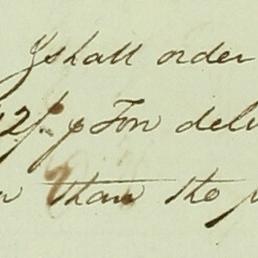 I shall order
42/. p Ton deli
than the